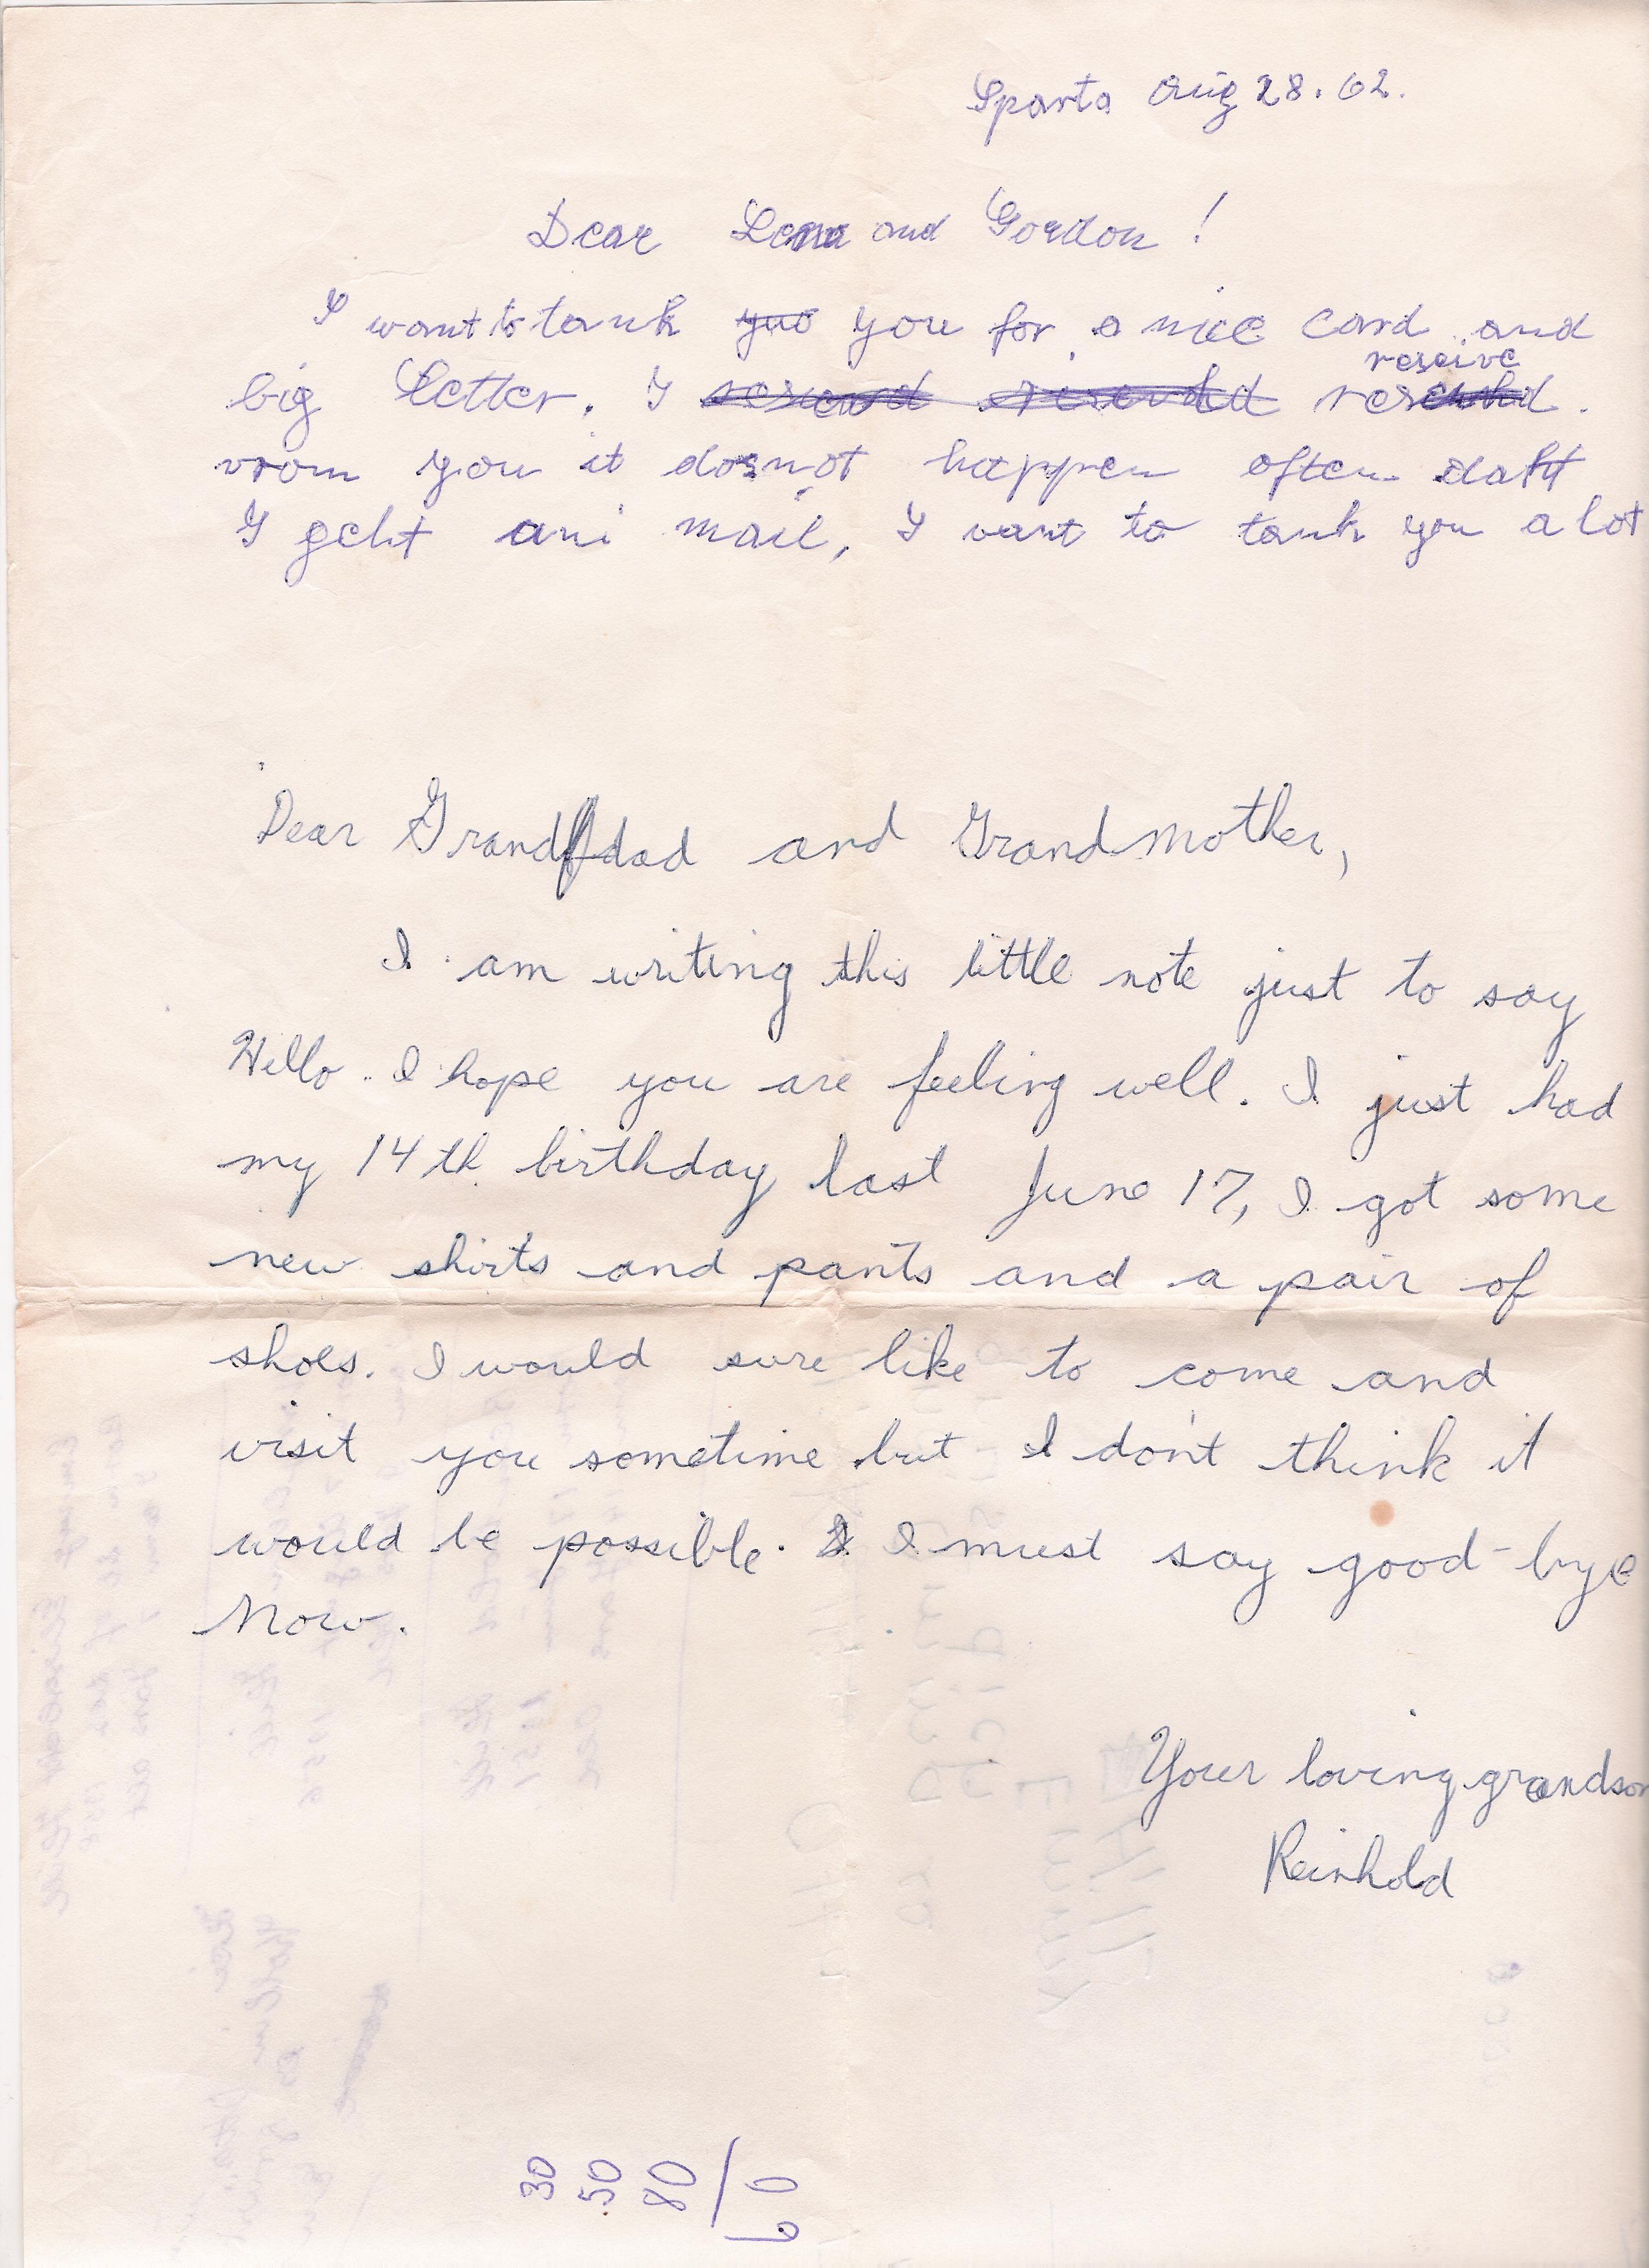 Sparta Aug 28. 62.
Dear Lena and Gordon !
I want to tank yuo you for a nice card and
big Letter. I resei
reseive
vrom you it dosnot happen often daht
I geht ani mail, I vant to tank you a lot
Dear Grandfdad and Grandmother,
I am writing this little note just to say
Hello. I hope you are feeling well. I just had
my 14th birthday last June 17, I got some
new shirts and pants and a pair of
shoes. I would sure like to come and
visit you sometime but I don't think it
would be possible. I I must say good-bye
Now.
Your loving grandson
Reinhold
30
50
80